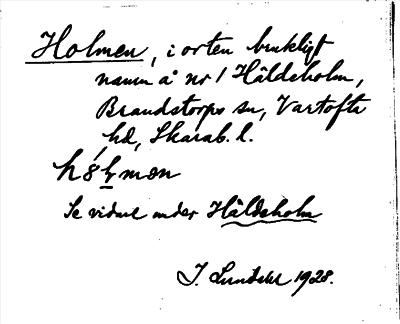 Holmen, i orten brukligt
namn å nr 1 Häldeholm,
Brandstorps sn, Vartofta
hd, Skarab. l.
Se vidare under Häldeholm
1928.